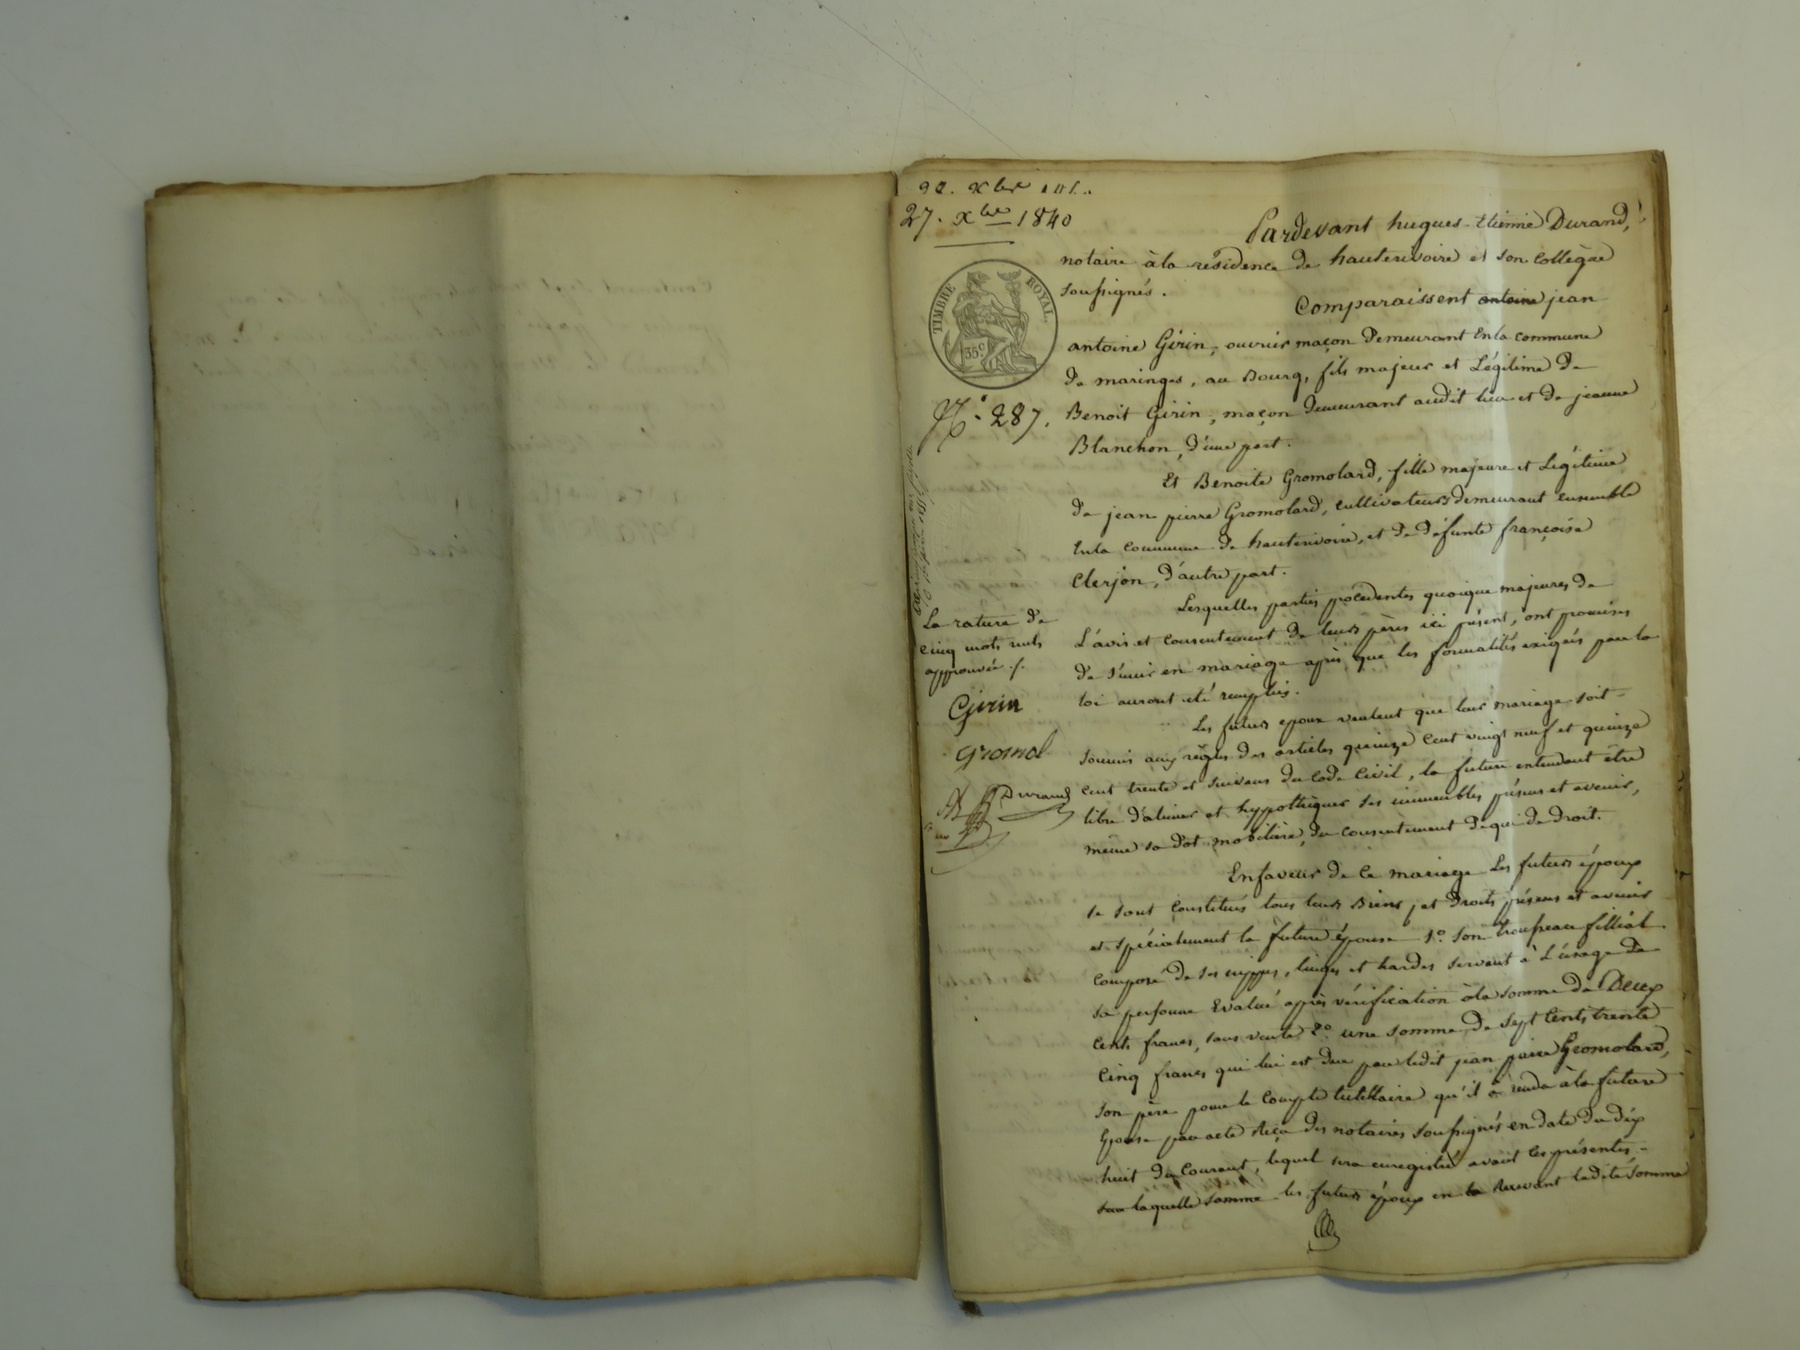 27. xbre 1840
TIMBRE ROYAL.
35c
No. 287.
Pardevant hugues-Etienne Durand,
notaire à la résidence de hauterivoire et son Collègue
soussignés.
Comparaissent antoine jean
antoine Girin, ouvrier maçon demeurant en la commune
de maringes, au Bourg, fils majeur et Légitime de
Benoit Girin, maçon demeurant audit lieu et de jeanne
Blanchon, d'une part.
Et Benoite Gromolard, fille majeure et Légitime
de jean pierre Gromolard, cultivateurs demeurant ensemble
en la commune de hauterivoire, et de défunte françoise
Clerjon, d'autre part.
Lesquelles parties procédentes quoique majeures de
L'avis et consentement de leurs pères ici présent, ont promises
de s'unir en mariage après que les formalités exigées par la
loi auront été remplies.
Les futurs epoux veulent que leur mariage soit
soumis aux règles des articles quinze cent vingt neuf et quinze
cent trente et suivans du Code Civil, la future entendant être
libre d'aliéner et hyppothéquer ses immeubles présens et avenir,
même sa dot mobilière, du consentement de qui de droit.
En faveur de ce mariage Les futurs époux
se sont constitués tous leurs Biens et droits présens et avenir
et spécialement la future épouse 1o. son trousseau filliat
composé de ses nippes, linges et hardes servant à L'usage de
sa personne Evalué après vérification à la somme de Deux
Cents francs, sans vente 2o. une somme de sept Cents trente
Cinq francs qui lui est due par ledit jean pierre Gromolard,
son père pour le compte tutellaire qu'il a rendu à la future
Epouse par acte Reçu des notaires soussignés en date du dix
huit du Courant, lequel sera enregistré avant ces présentes.
sur laquelle somme les futurs époux en la recevant ladite somme
La rature de
cinq mots nuls
approuvée ./.
Girin
gromol
Durand